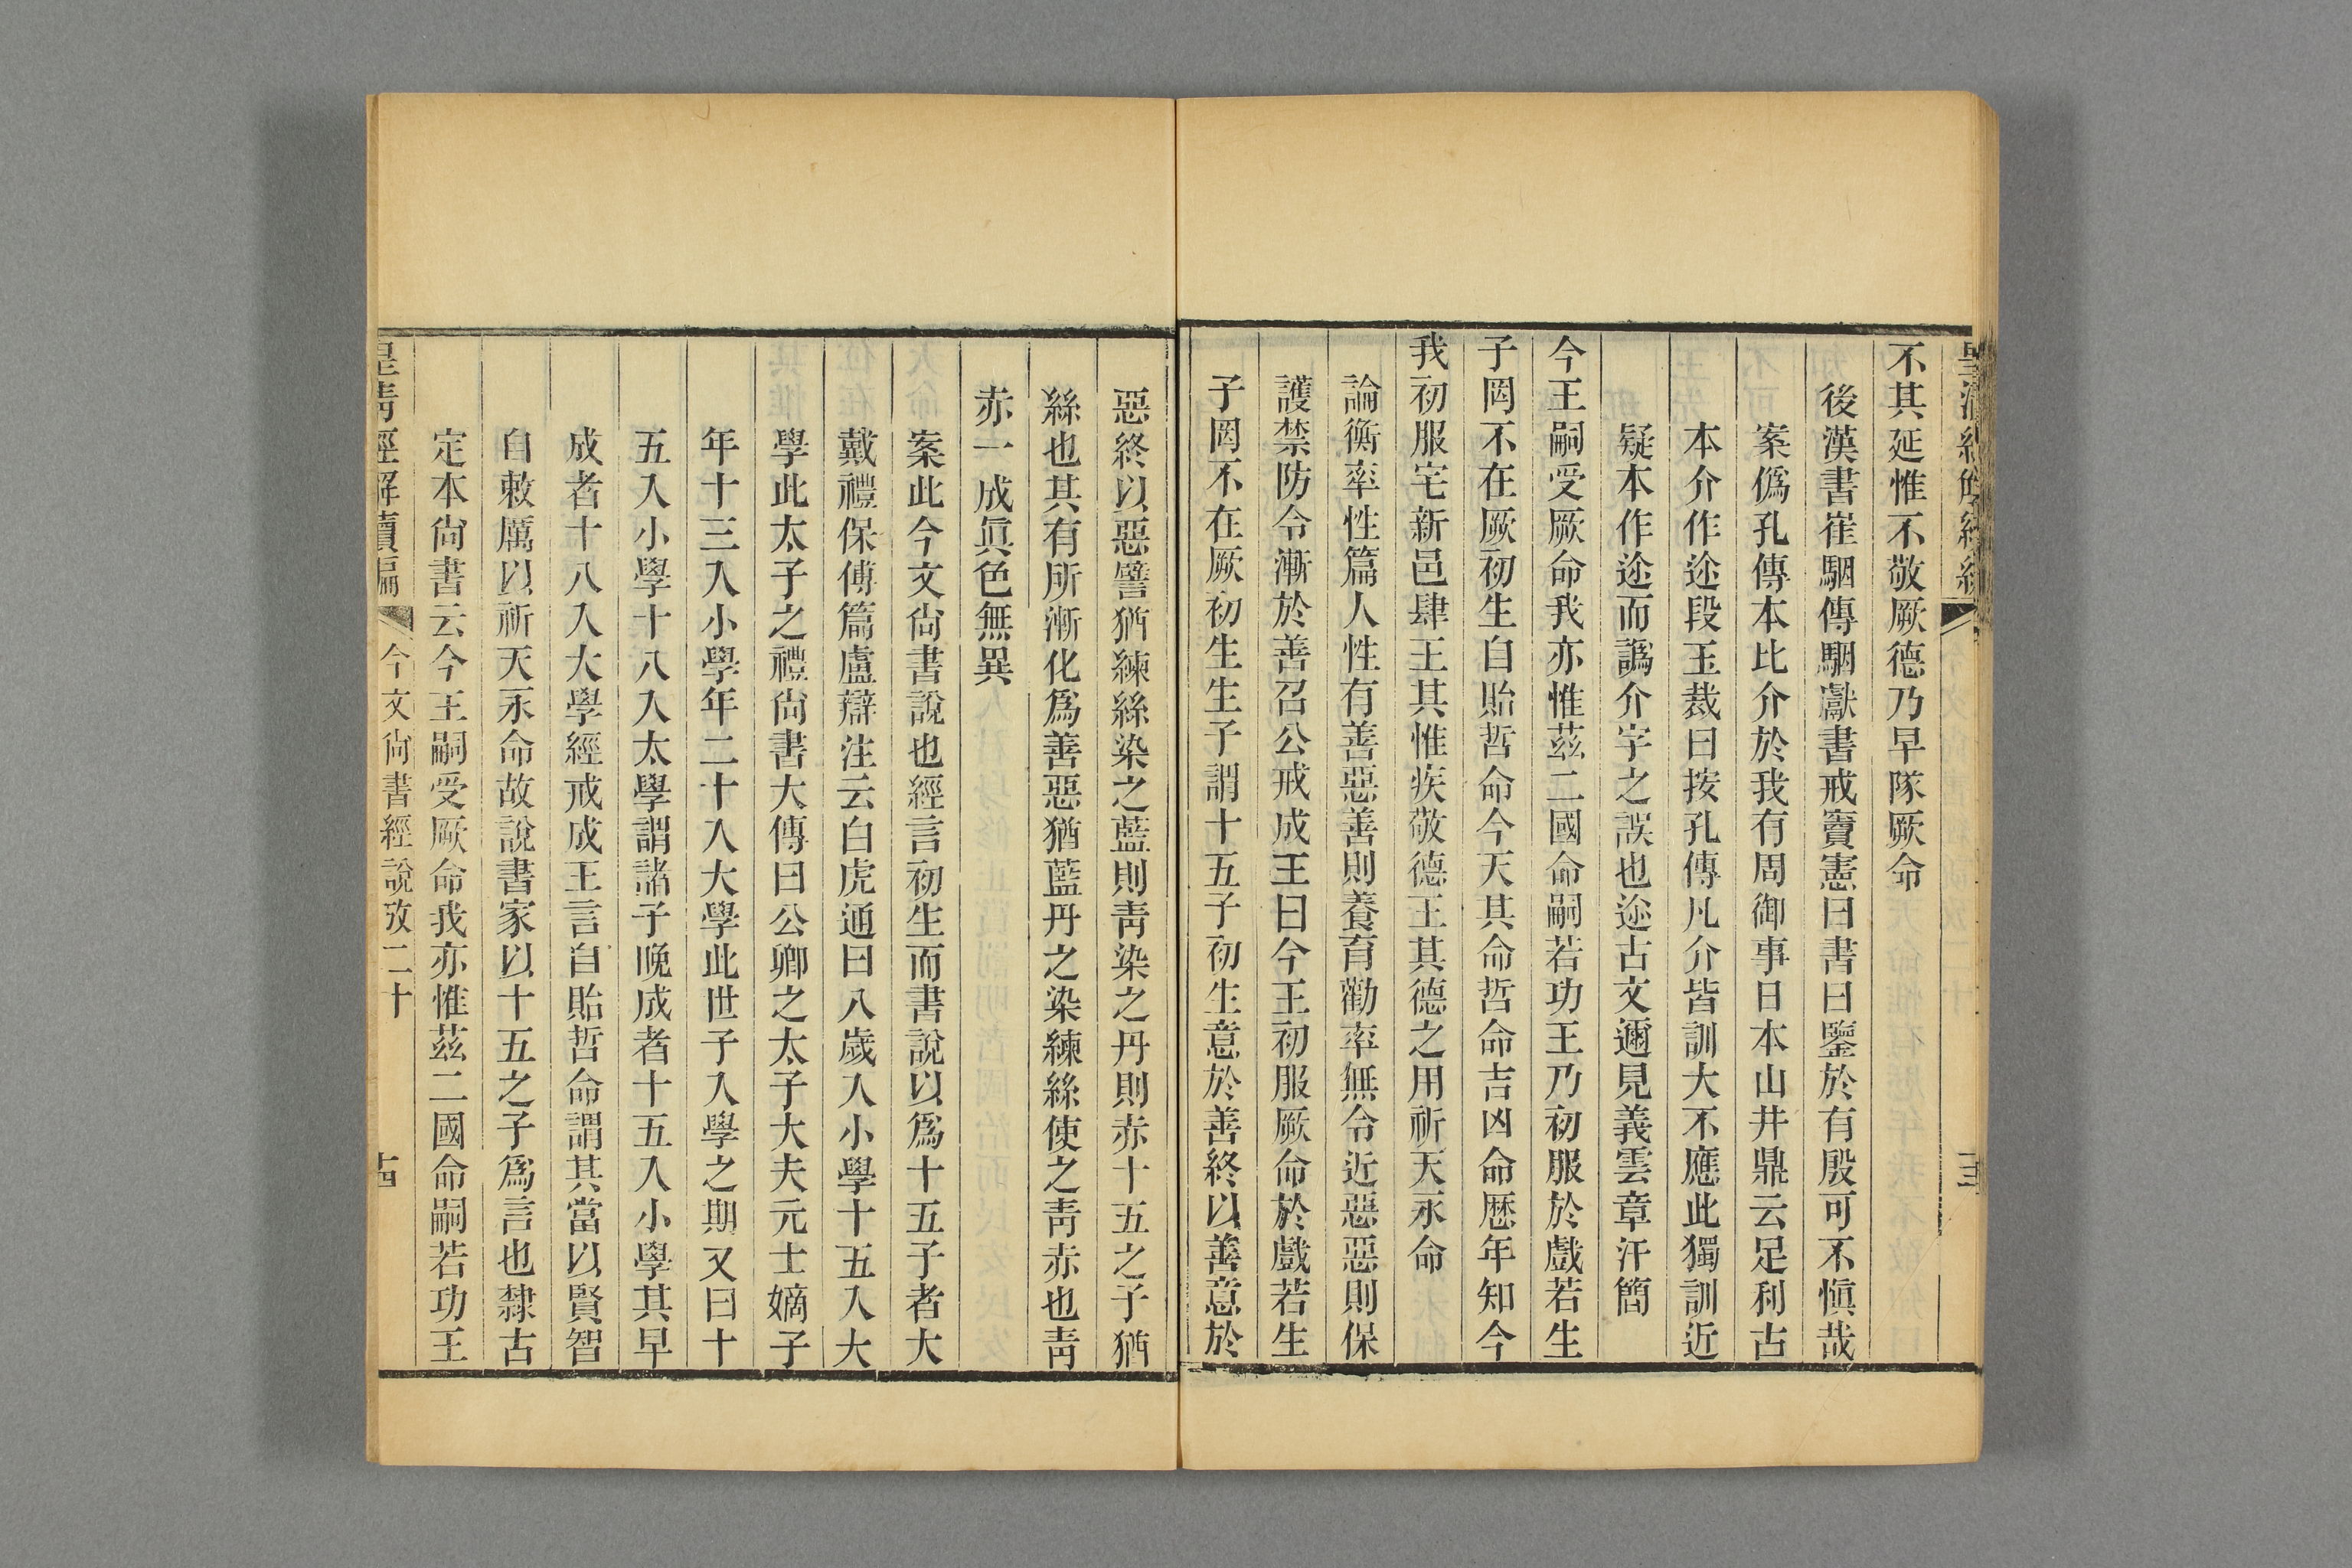 不其延惟不敬厥德乃早隊厥命
後漢書崔駰傳駰獻書戒竇憲曰書曰鑒於有殷可不愼哉
案僞孔傳本比介於我有周御事日本山井鼎云足利古
本介作迩段玉裁曰按孔傳凡介皆訓大不應此獨訓近
疑本作迩而譌介字之誤也迩古文邇見義雲章汗簡
今王嗣受厥命我亦惟茲二國命嗣若功王乃初服於戲若生
子罔不在厥初生自貽哲命今天其命哲命吉凶命歷年知今
我初服宅新邑肆王其惟疾敬德王其德之用祈天永命
論衡率性篇人性有善惡善則養育勸率無令近惡惡則保
護禁防令漸於善召公戒成王曰今王初服厥命於戲若生
子罔不在厥初生生子謂十五子初生意於善終以善意於
惡終以惡譬猶練絲染之藍則靑染之丹則赤十五之子猶
絲也其有所漸化爲善惡猶藍丹之染練絲使之靑赤也靑
赤一成眞色無異
案此今文尙書說也經言初生而書說以爲十五子者大
戴禮保傅篇盧辯注云白虎通曰八歲入小學十五入大
學此太子之禮尙書大傳曰公卿之太子大夫元士嫡子
年十三入小學年二十入大學此世子入學之期又曰十
五入小學十八入太學謂諸子晚成者十五入小學其早
成者十八入大學經戒成王言自貽哲命謂其當以賢智
自敕厲以祈天永命故說書家以十五之子爲言也隸古
定本尙書云今王嗣受厥命我亦惟茲二國命嗣若功王
皇淸經解續編 今文尙書經說攷二十 十四